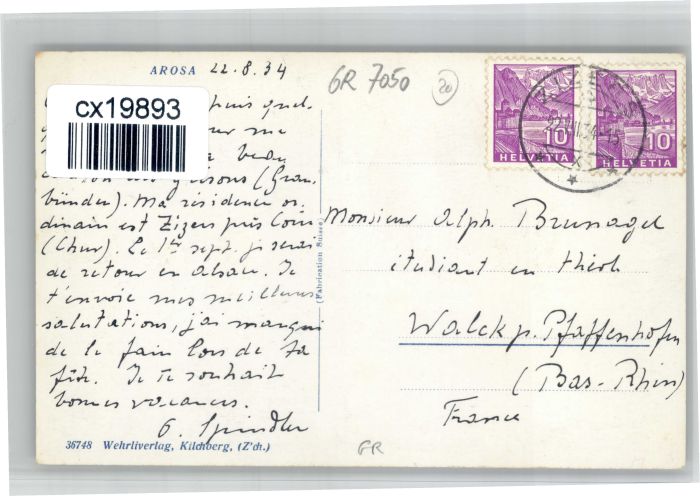 AROSA 22.8.34
GR 7050
20
cx19893
puis quel-
me
beau
(Grau-
bünden). Ma résidence or-
dinaire est Zizers près Coire
(Chur). Le 1er sept. je serai
de retour en Alsace. Je
t'envoie mes meilleures
salutations, j'ai manqué
de le faire lors de ta
fête. Je te souhait
bonnes vacances.
G. Spindler
36748 Wehrliverlag, Kilchberg, (Z'ch.)
(Fabrication Suisse)
10 HELVETIA
10 HELVETIA
Monsieur Alph. Brunagel
étudiant en théol.
Walck p. Pfaffenhofen
(Bas-Rhin)
France
GR